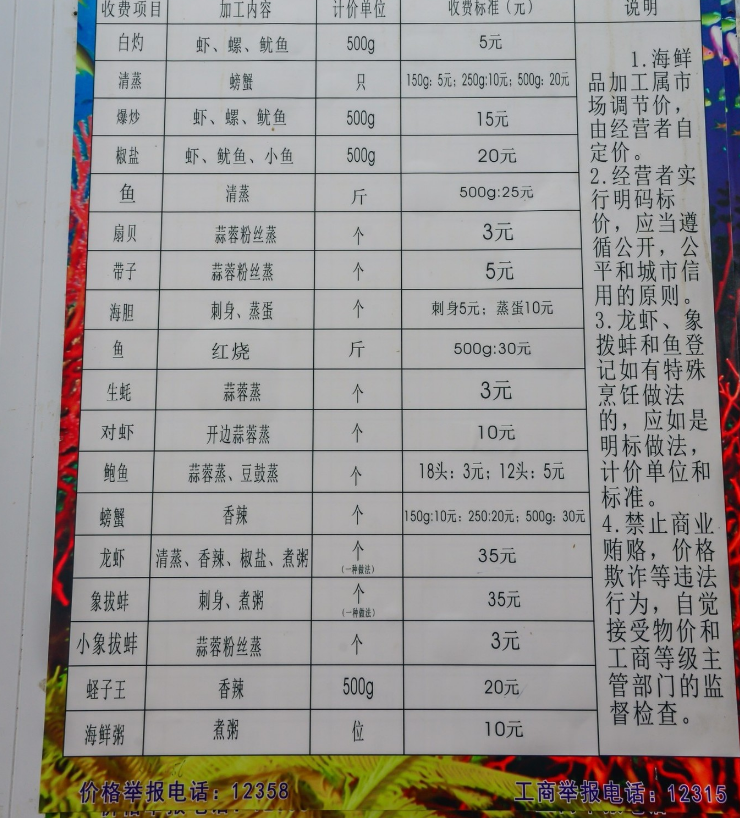 收费项目 加工内容 计价单位 收费标准（元） 说明
白灼 虾、螺、鱿鱼 500g 5元
清蒸 螃蟹 只 150g: 5元; 250g:10元; 500g: 20元
爆炒 虾、螺、鱿鱼 500g 15元
椒盐 虾、鱿鱼、小鱼 500g 20元
鱼 清蒸 斤 500g:25元
扇贝 蒜蓉粉丝蒸 个 3元
带子 蒜蓉粉丝蒸 个 5元
海胆 刺身、蒸蛋 个 刺身5元; 蒸蛋10元
鱼 红烧 斤 500g:30元
生蚝 蒜蓉蒸 个 3元
对虾 开边蒜蓉蒸 个 10元
鲍鱼 蒜蓉蒸、豆鼓蒸 个 18头: 3元; 12头: 5元
螃蟹 香辣 个 150g:10元: 250:20元; 500g: 30元
龙虾 清蒸、香辣、椒盐、煮粥 个 35元
（一种做法）
象拔蚌 刺身、煮粥 个 35元
（一种做法）
小象拔蚌 蒜蓉粉丝蒸 个 3元
蛏子王 香辣 500g 20元
海鲜粥 煮粥 位 10元
1.海鲜
品加工属市
场调节价，
由经营者自
定价。
2.经营者实
行明码标
价，应当遵
循公开，公
平和城市信
用的原则。
3.龙虾、象
拨蚌和鱼登
记如有特殊
烹饪做法
的，应如是
明标做法，
计价单位和
标准。
4.禁止商业
贿赂，价格
欺诈等违法
行为，自觉
接受物价和
工商等级主
管部门的监
督检查。
价格举报电话：12358 工商举报电话：12315